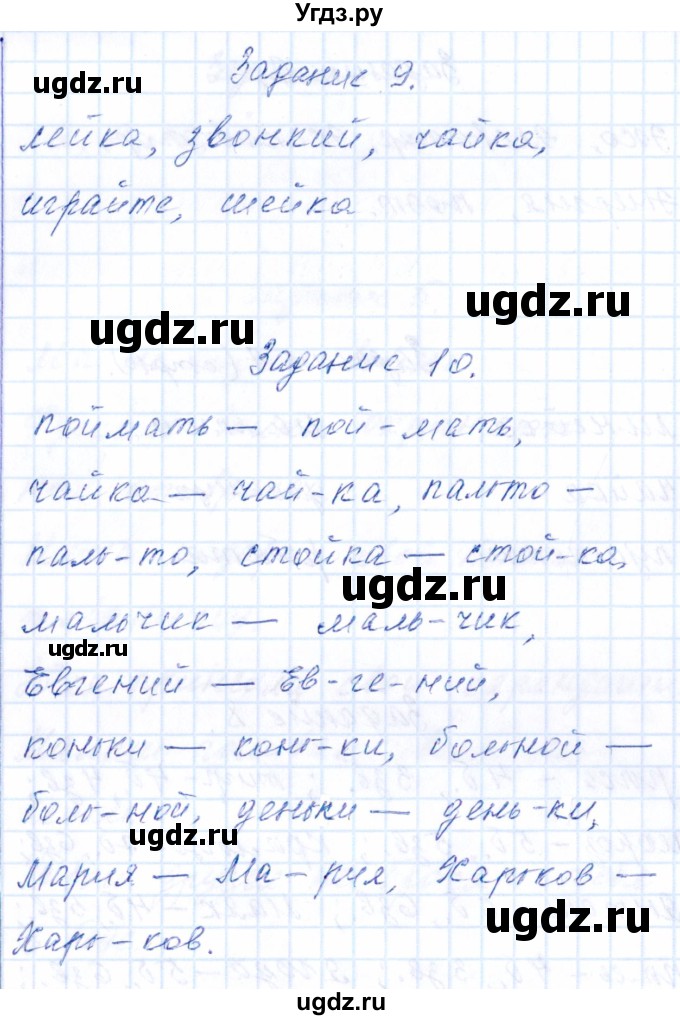 Угдз.ру
ugdz.ru
Задание 9.
лейка, звонкий, чайка,
играйте, шейка
ugdz.ru
ugdz.ru
Задание 10.
поймать — пой-мать,
чайка — чай-ка, пальто —
паль-то, стойка — стой-ка,
ugdz.ru
мальчик — маль-чик,
ugdz.ru
Евгений — Ев-ге-ний,
коньки — конь-ки, больной —
боль-ной, деньки — день-ки,
ugdz.ru
Мария — Ма-рия, Харьков —
ugdz.ru
Харь-ков.
ugdz.ru